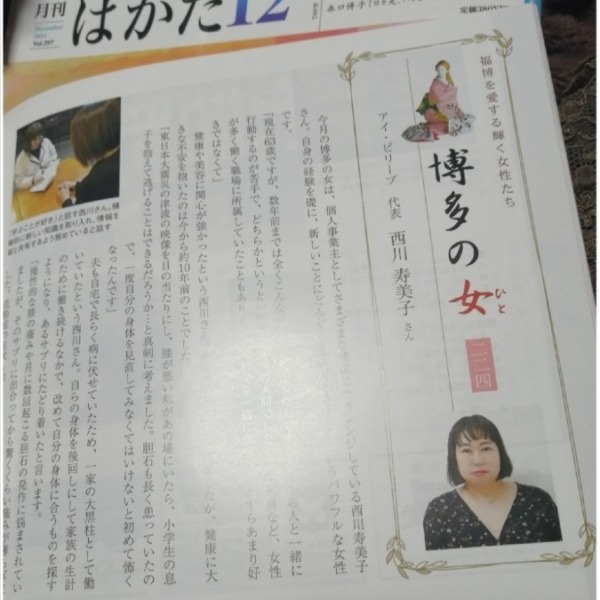 月刊
はかた12
December
2021
Vol.397
定価380
福博を愛する輝く女性たち
博多の女
ひと
二二四
アイ・ビリーブ 代表 西川 寿美子さん
今月の博多の女は、個人事業主としてさまざま
している西川寿美子
さん。自身の経験を礎に、新しいことに
パワフルな女性
です。
「現在63歳ですが、数年前までは全くこんな
ら人と一緒に
行動するのが苦手で、どちらかというと一
など、女性
が多く働く職場に所属していたこともあり
すらあまり好
きではなくて」
健康や美容に関心が強かったという西川さん
たが、健康に大
きな不安を抱いたのは今から約10年前のことでした
「東日本大震災の津波の映像を目の当たりにし、膝が悪い私があの場にいたら、小学生の息
子を抱えて逃げることはできるだろうか…と真剣に考えました。胆石も長く患っていたの
で、一度自分の身体を見直してみなくてはいけないと初めて怖く
なったんです」
夫も自宅で長らく病に伏せていたため、一家の大黒柱として働
いていたという西川さん。自らの身体を後回しにして家族の生計
のために働き続けるなかで、改めて自分の身体に合うものを探す
ようになり、あるサプリにたどり着いたと言います。
「慢性的な膝の痛みや月に数回起こる胆石の発作に悩まされてい
ましたが、そのサプリに出合ってから驚くくらい痛みが
「学ぶことが好き」と話す西川さん。積
極的に新しい知識を取り入れ、情報を
皆と共有するよう努めていると話す